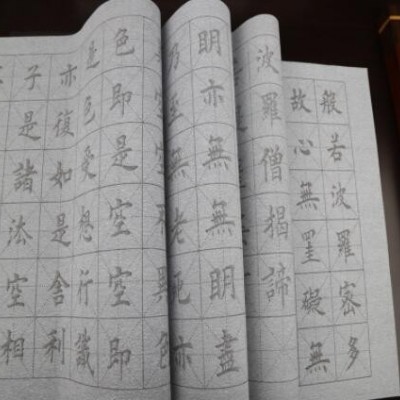 般若波羅密多
故心無罣礙無
波羅僧揭諦
明亦無無明盡
乃至無老死亦
色即是空空即
是色受想行識
亦復如是舍利
子是諸法空相